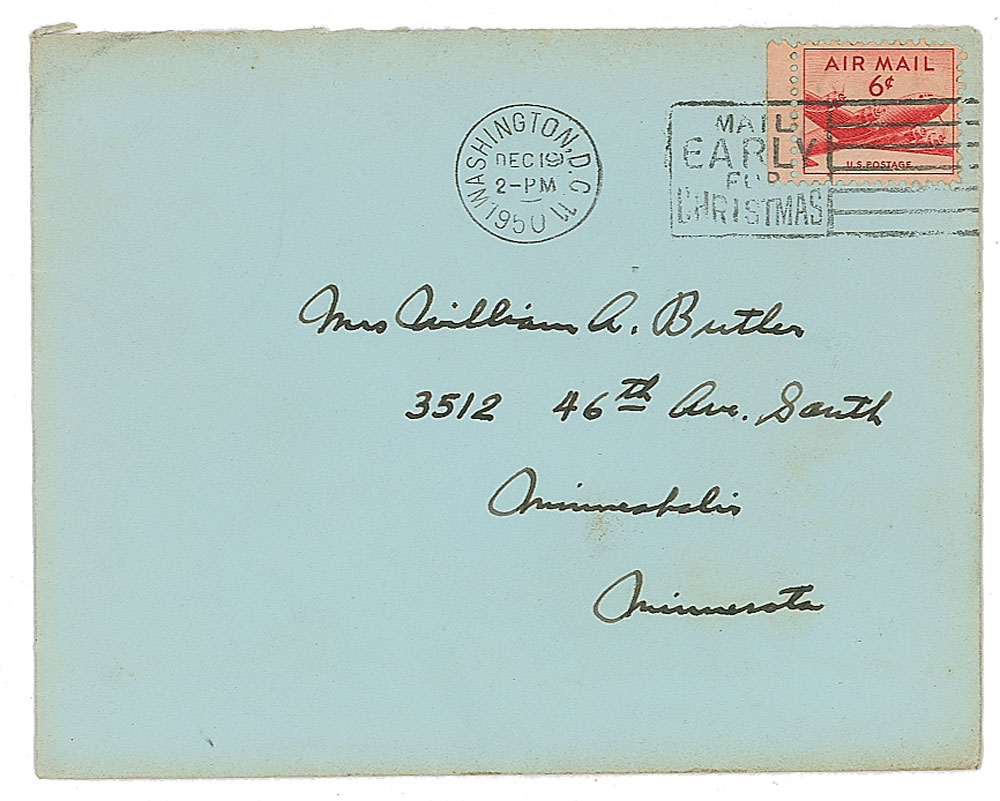 AIR MAIL
6¢
U.S. POSTAGE
WASHINGTON, D.C. 11
DEC 19
2-PM
1950
MAIL
EARLY
FOR
CHRISTMAS
Mrs William A. Butler
3512 46th Ave. South
Minneapolis
Minnesota